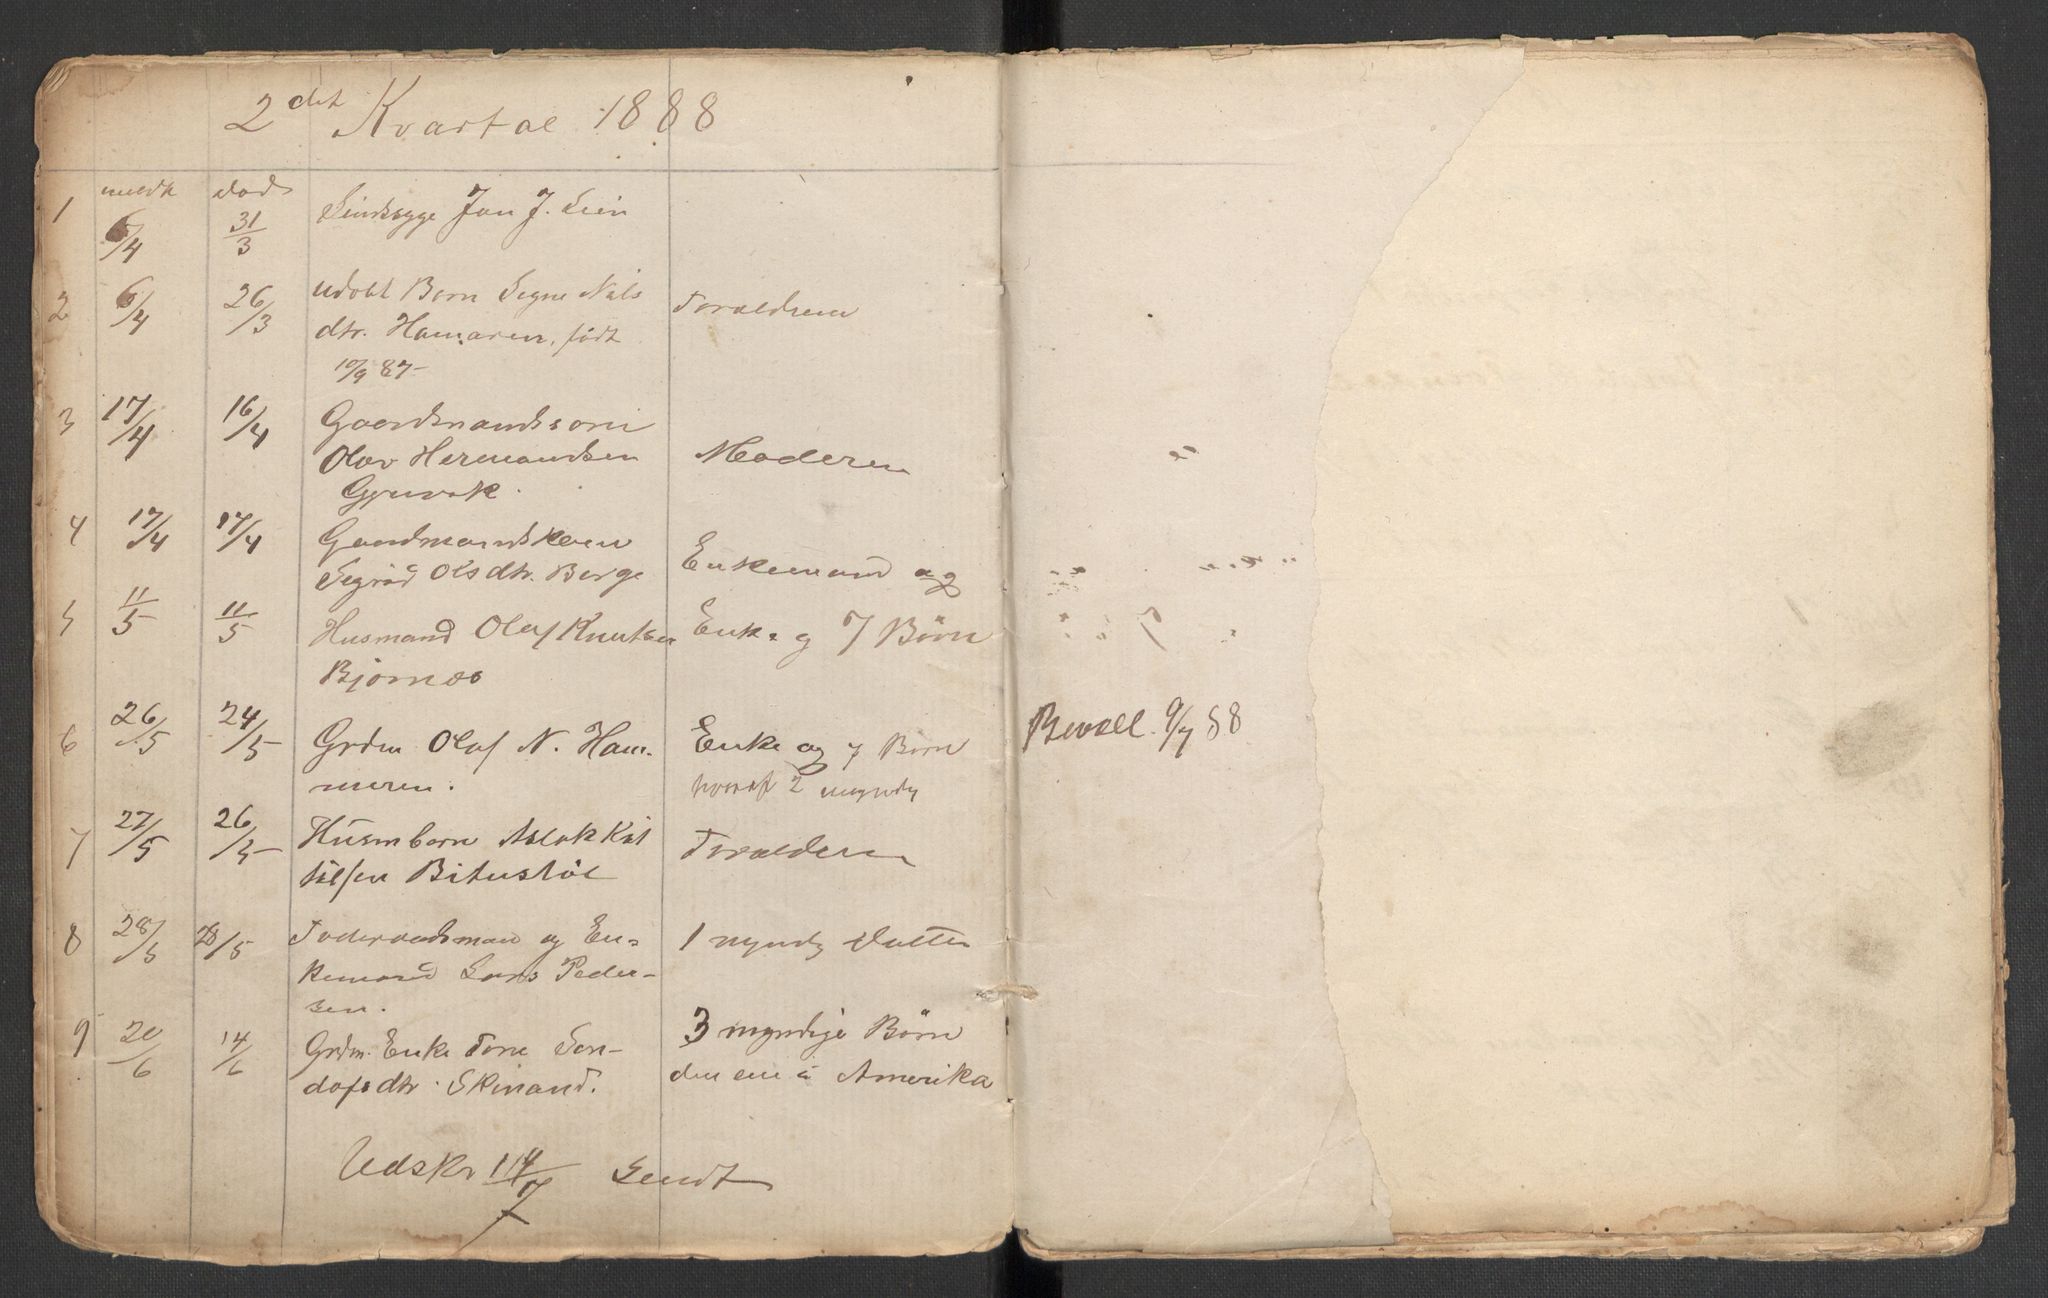 2det Kvartal 1888
meldt død
1 6/4 31/3 Sindssyge Jon J. Lien
2 6/4 26/3 udøbt Barn Signe Nils Foraldrene
dtr. Hamaren, født
10/9 87
3 17/4 16/4 Gaardmandssøn
Olav Hermandsen Moderen
4 17/4 17/4 Gaardmandskone
Sigrid Olsdtr. Berge Enkemand og
5 11/5 11/5 Husmand Olaf Knutsen Enke og 7 Børn
Bjørnæs
6 26/5 24/5 Grdm Olaf N. Ham- Enke og 7 Børn Bevill. 9/7 88
meren. hvoraf 2 myndig
7 27/5 26/5 Husm barn Aslak Kit Foraldren
tilsen Bitustøl
8 28/5 28/5 Foderaadsman og En- 1 myndig Datter
kemand Lars Peder-
sen.
9 20/6 14/6 Grdm. Enke Tone Son- 3 myndige Børn
dofsdtr. Skinand. den ene i Amerika
Udskr 14/7 Sendt